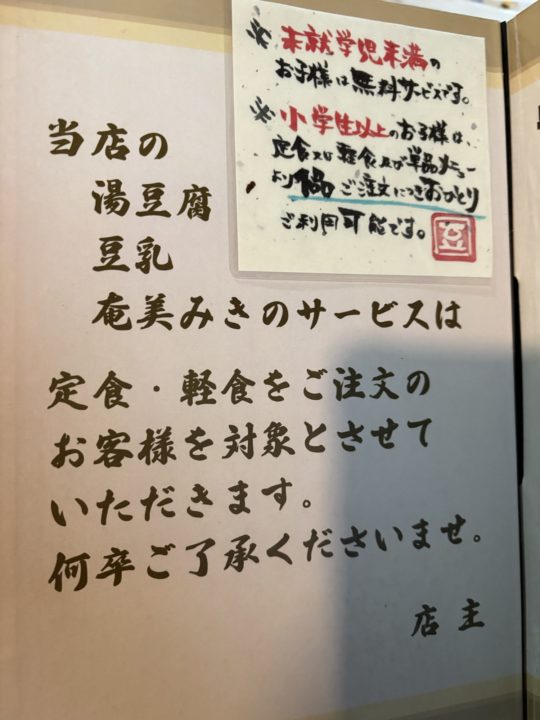 ※未就学児未満の
お子様は無料サービスです。
※小学生以上のお子様は、
定食又は軽食及び単品メニュー
より1品ご注文につきおひとり
ご利用可能です。
豆
当店の
湯豆腐
豆乳
奄美みきのサービスは
定食・軽食をご注文の
お客様を対象とさせて
いただきます。
何卒ご了承くださいませ。
店主